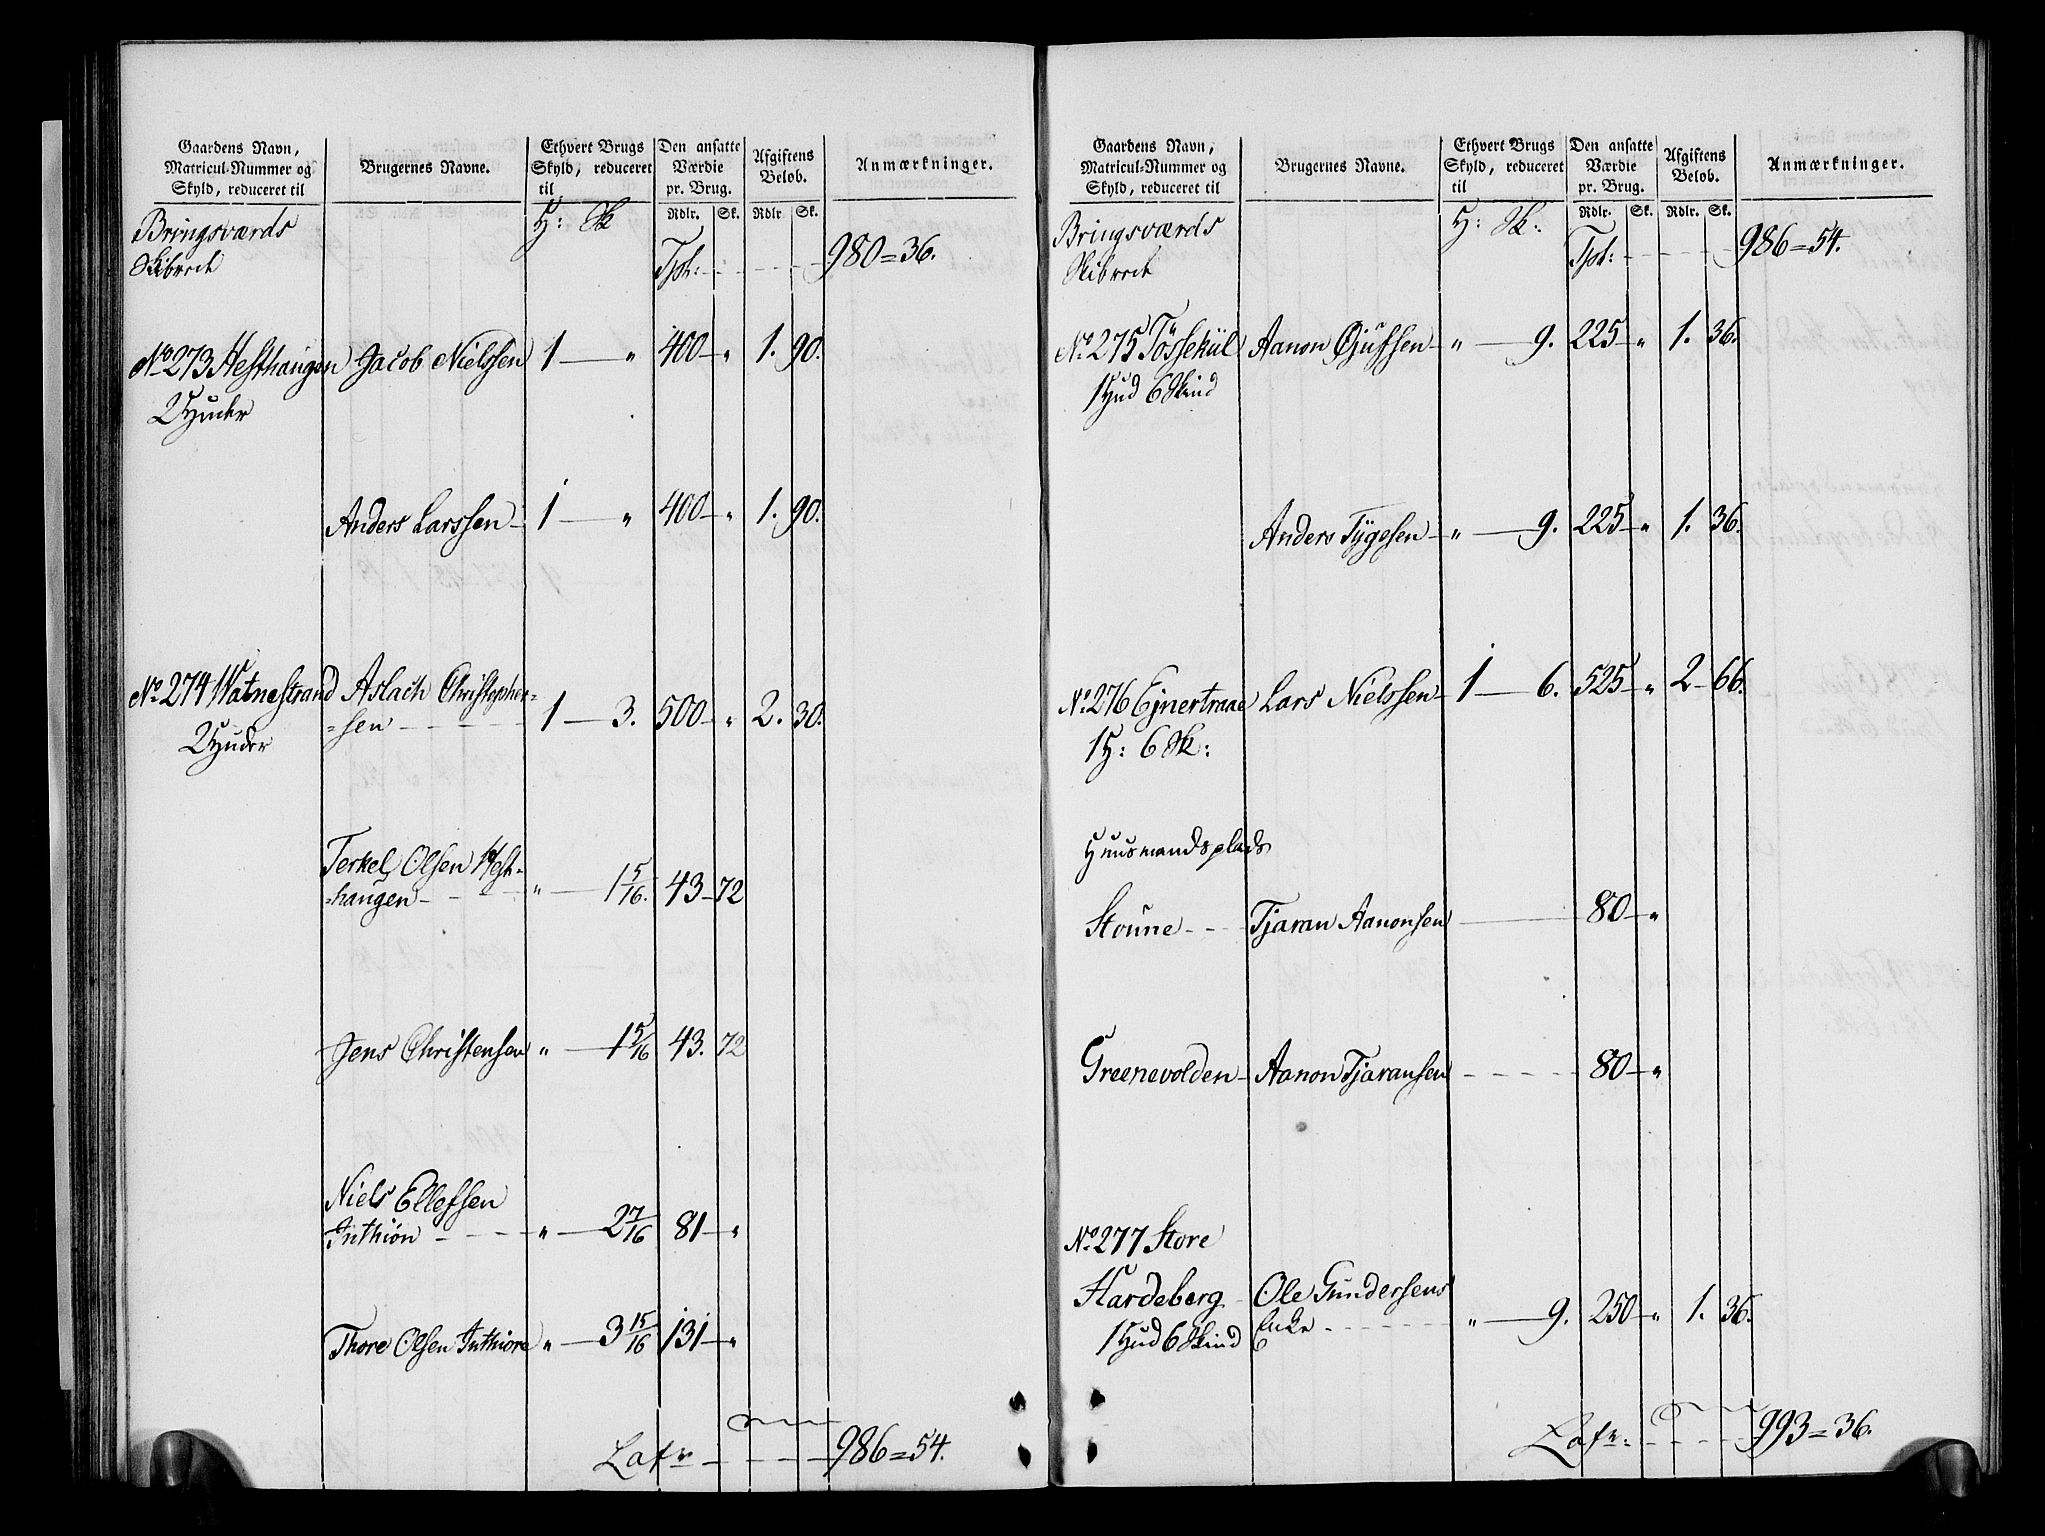 Gaardens Navn, Matricul-Nummer og Skyld, reduceret til | Brugernes Navne. | Ethvert Brugs Skyld, reduceret til | Den ansatte Værdie pr. Brug. | Afgiftens Beløb. | Anmærkninger.
H: Sk | Rdlr. | Sk. | Rdlr. | Sk.
Bringsværds
Skibrede Tpt: 980=36.
No 273 Hesthaugen Jacob Nielssen 1 — " 400 — " 1. 90.
2 Huder
Anders Larssen 1 — " 400 — " 1. 90.
No 274 Watnestrand Aslach Christopher=
2 Huder =sen 1 — 3. 500 — " 2. 30.
Terkel Olsen Hest-
=haugen " — 1 5/16. 43 — 72
Jens Christensen " — 1 5/16 43. 72
Niels Ellefsen
Inthiön " — 2 7/16 81 — "
Thore Olsen Inthiore " — 3 15/16 131 — "
Lafr 986=54.
Gaardens Navn, Matricul-Nummer og Skyld, reduceret til | Brugernes Navne. | Ethvert Brugs Skyld, reduceret til | Den ansatte Værdie pr. Brug. | Afgiftens Beløb. | Anmærkninger.
H: Sk: | Rdlr. | Sk. | Rdlr. | Sk.
Bringsværds
Skibrede Tpt: 986=54.
No 275 Tössekül Aanon Øjufsen " — 9. 225 — " 1. 36.
1 Hud 6 Skind
Anders Tygesen " — 9. 225 — " 1. 36.
No 276 Ejnertraae Lars Nielssen 1 — 6. 525 — " 2 — 66.
1 H: 6 Sk:
Huusmandsplads
Stoüne Tjaran Aanonsen 80 — "
Greenevolden Aanon Tjaransen 80 — "
No 277 Store
Hardeberg Ole Gundersens
1 Hud 6 Skind Enke " — 9. 250 — " 1. 36.
Lafr: 993=36.